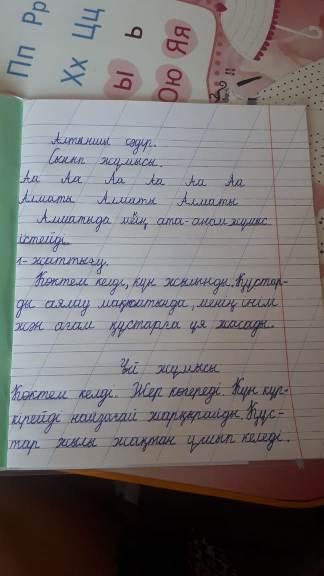 Пп Рр
Хх Цц
ь
Ы Юю Яя
Алтыншы сәуір.
Сынып жұмысы.
Аа Аа Аа Аа Аа Аа
Алматы Алматы Алматы
Алматыда менің ата-анам жұмыс
істейді
1-жаттығу.
Көктем келді, күн жылынды. Құстар-
ды аялау мақсатында, менің інім
жән ағам құстарға ұя жасады.
Үй жұмысы
Көктем келді. Жер көгереді. Күн күр-
кірейді найзағай жарқырайды. Құс-
тар жылы жақтан ұшып келеді.